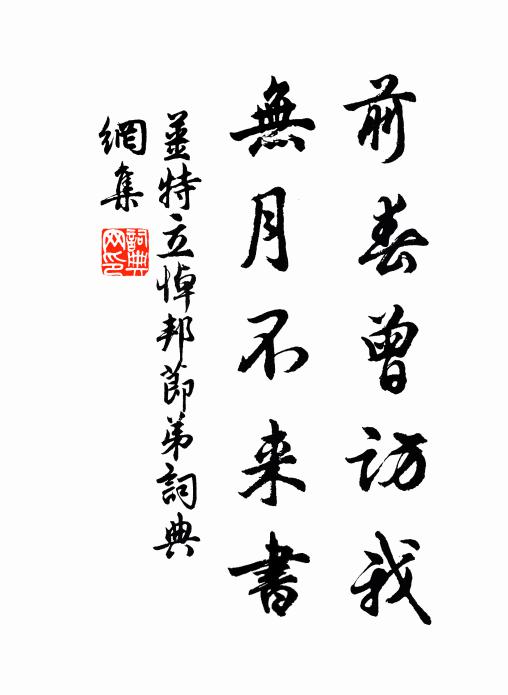 前春曾訪我
無月不来書
姜特立悼邦節弟詞典
網集
詞典網印